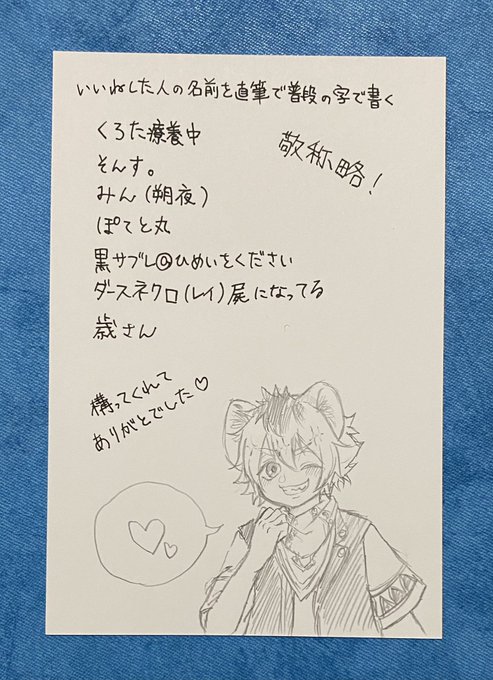 いいねした人の名前を直筆で普段の字で書く
敬称略!
くろた療養中
そんす。
みん(朔夜)
ぽてと丸
黒サブレ@ひめいをください
ダースネクロ(レイ)屍になってる
歳さん
構ってくれて
ありがとでした♡